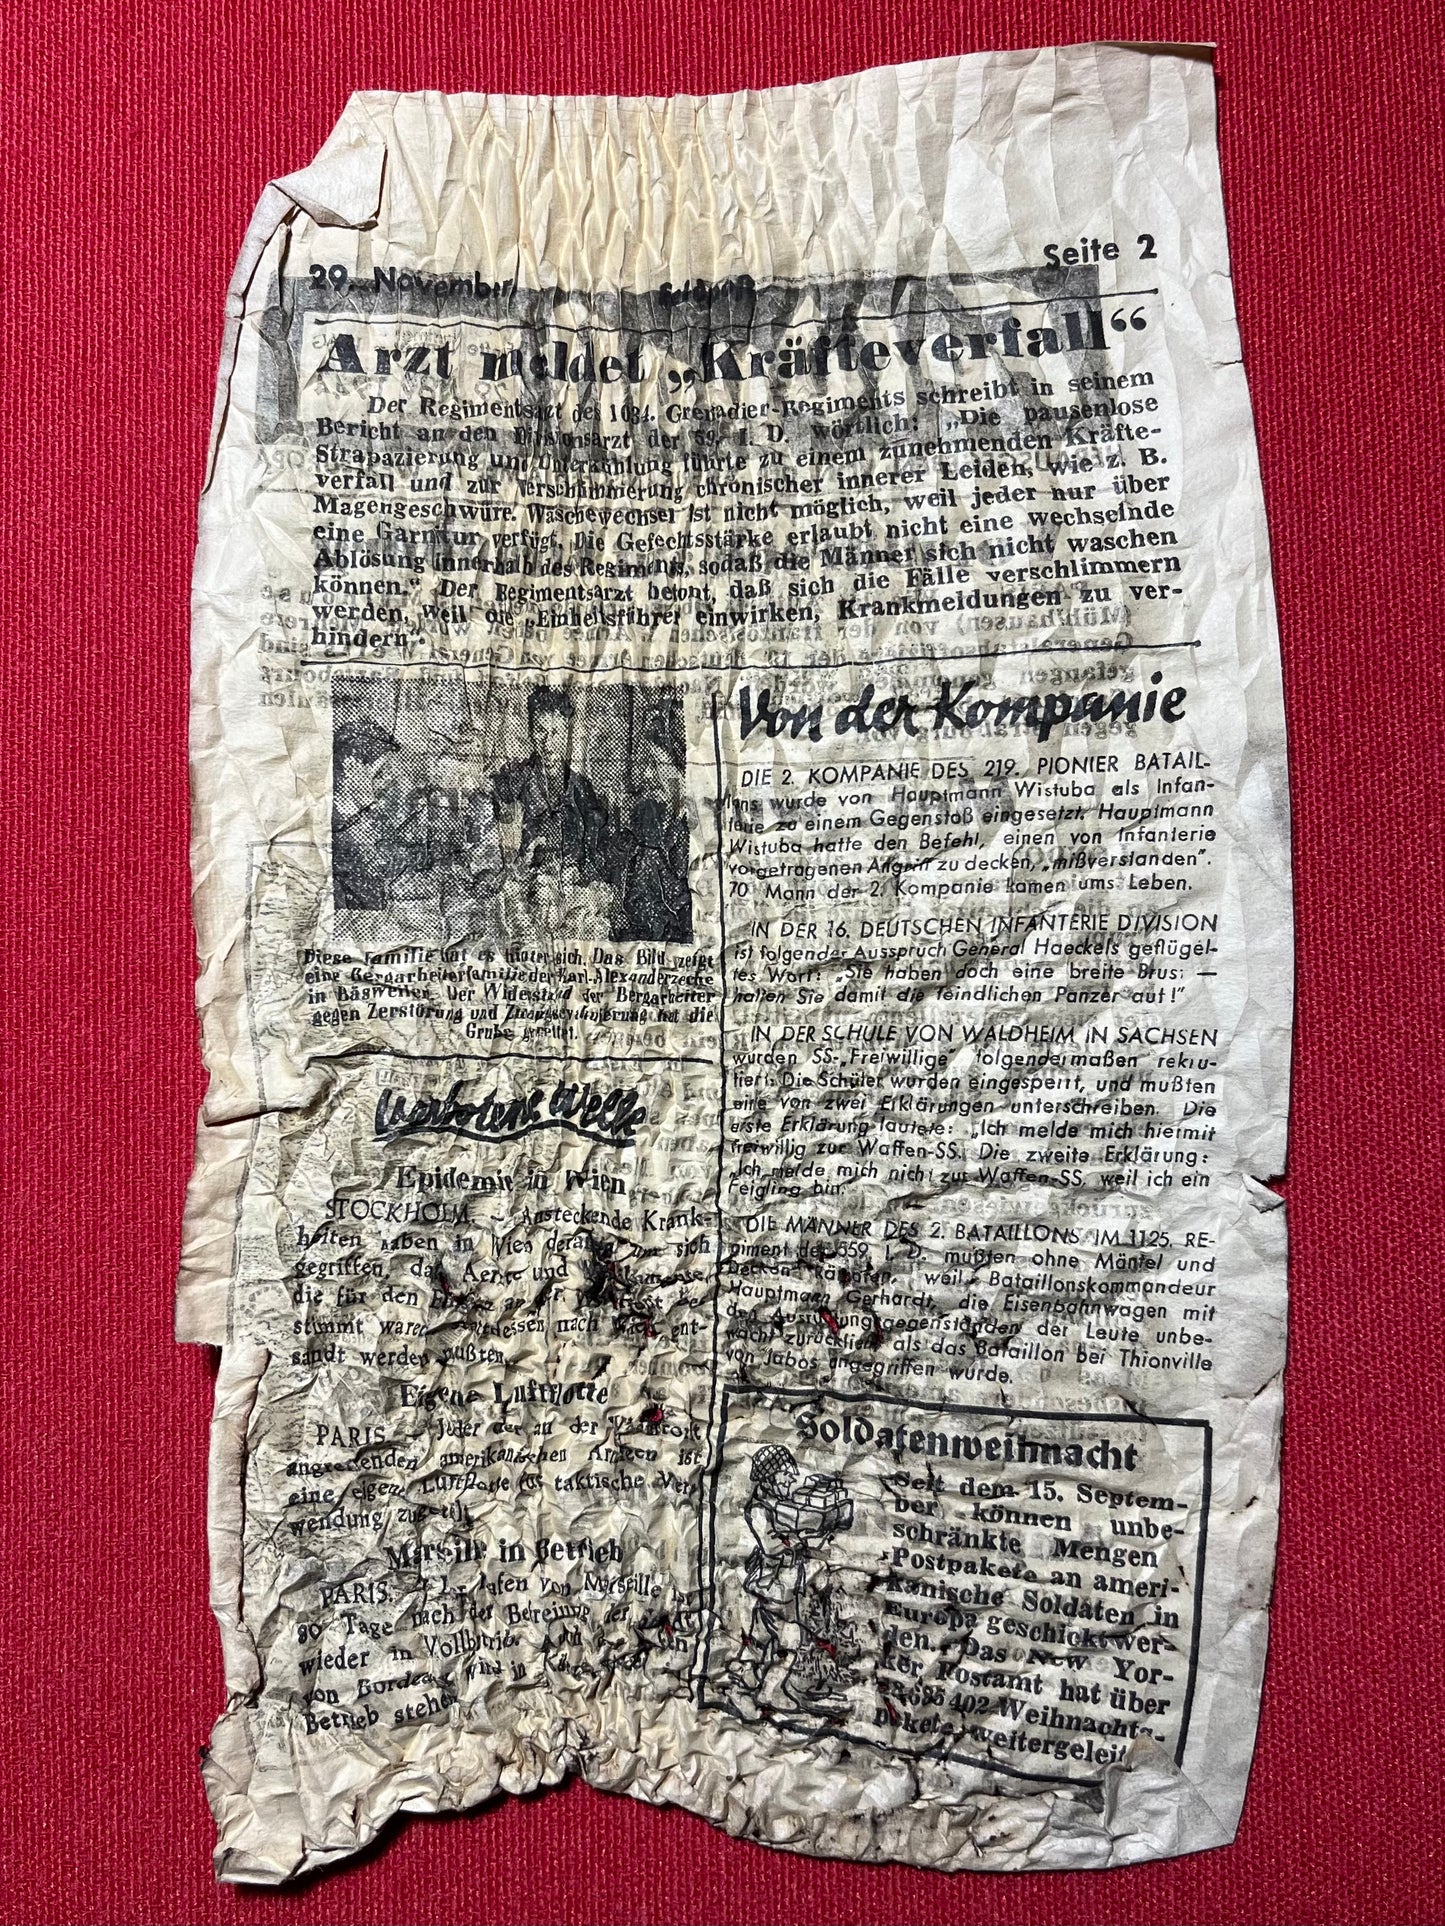 29. November
Feldpost
Seite 2
Arzt meldet „Kräfteverfall“
Der Regimentsarzt des 1034. Grenadier-Regiments schreibt in seinem
Bericht an den Divisionsarzt der 59. I. D. wörtlich: „Die pausenlose
Strapazierung und Unterkühlung führte zu einem zunehmenden Kräfte-
verfall und zur Verschlimmerung chronischer innerer Leiden, wie z. B.
Magengeschwüre. Wäschewechsel ist nicht möglich, weil jeder nur über
eine Garnitur verfügt. Die Gefechtsstärke erlaubt nicht eine wechselnde
Ablösung innerhalb des Regiments, sodaß die Männer sich nicht waschen
können.“ Der Regimentsarzt betont, daß sich die Fälle verschlimmern
werden, weil die „Einheitsführer einwirken, Krankmeldungen zu ver-
hindern“.
Diese Familie hat es hinter sich. Das Bild zeigt
eine Bergarbeiterfamilie der Karl-Alexanderzeche
in Bäsweiler. Der Widerstand der Bergarbeiter
gegen Zerstörung und Zwangsevakuierung hat die
Grube gerettet.
Verbotene Welle
Epidemie in Wien
STOCKHOLM. — Ansteckende Krank-
heiten haben in Wien derart um sich
gegriffen, daß Aerzte und
die für den an der be-
stimmt waren, stattdessen nach Wien ent-
sandt werden mußten.
Eigene Luftflotte
PARIS. — Jeder der an der Westfront
angreifenden amerikanischen Armeen ist
eine eigene Luftflotte für taktische Ver-
wendung zugeteilt.
Marseille in Betrieb
PARIS. — Der Hafen von Marseille ist
80 Tage nach der Befreiung der Stadt
wieder in Vollbetrieb. Auch der Hafen
von Bordeaux wird in Kürze wieder in
Betrieb stehen.
Von der Kompanie
DIE 2. KOMPANIE DES 219. PIONIER BATAIL-
lons wurde von Hauptmann Wistuba als Infan-
terie zu einem Gegenstoß eingesetzt. Hauptmann
Wistuba hatte den Befehl, einen von Infanterie
vorgetragenen Angriff zu decken, „mißverstanden“.
70 Mann der 2. Kompanie kamen ums Leben.
IN DER 16. DEUTSCHEN INFANTERIE DIVISION
ist folgender Ausspruch General Haeckels geflügel-
tes Wort: „Sie haben doch eine breite Brust —
halten Sie damit die feindlichen Panzer auf!“
IN DER SCHULE VON WALDHEIM IN SACHSEN
wurden SS-„Freiwillige“ folgendermaßen rekru-
tiert: Die Schüler wurden eingesperrt, und mußten
eine von zwei Erklärungen unterschreiben. Die
erste Erklärung lautete: „Ich melde mich hiermit
freiwillig zur Waffen-SS. Die zweite Erklärung:
„Ich melde mich nicht zur Waffen-SS, weil ich ein
Feigling bin.“
DIE MÄNNER DES 2. BATAILLONS IM 1125. RE-
giment der 559. I. D. mußten ohne Mäntel und
Decken kämpfen, weil Bataillonskommandeur
Hauptmann Gerhardt, die Eisenbahnwagen mit
den Ausrüstungsgegenständen der Leute unbe-
wacht zurückließ, als das Bataillon bei Thionville
von Jabos angegriffen wurde.
Soldatenweihnacht
Seit dem 15. Septem-
ber können unbe-
schränkte Mengen
Postpakete an ameri-
kanische Soldaten in
Europa geschickt wer-
den. Das New Yor-
ker Postamt hat über
Weihnachts-
pakete weitergeleit